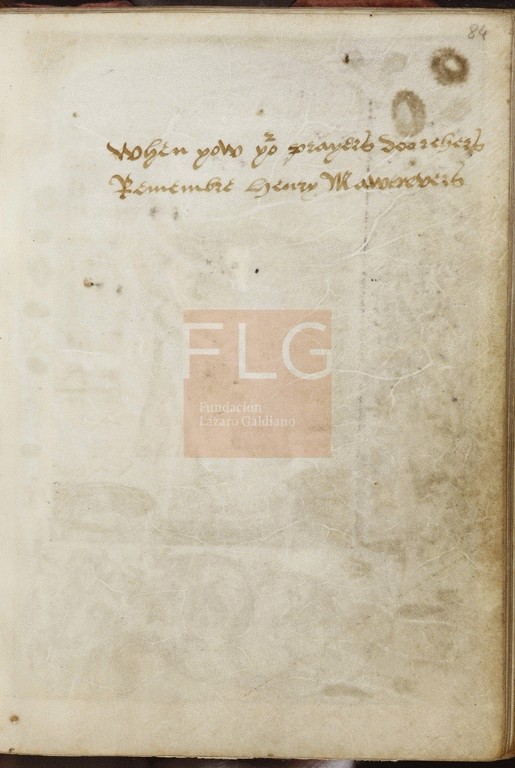 84
When yow yor prayers doo rehers
Remembre Henry Mawerovers
FLG
Fundación
Lázaro Galdiano